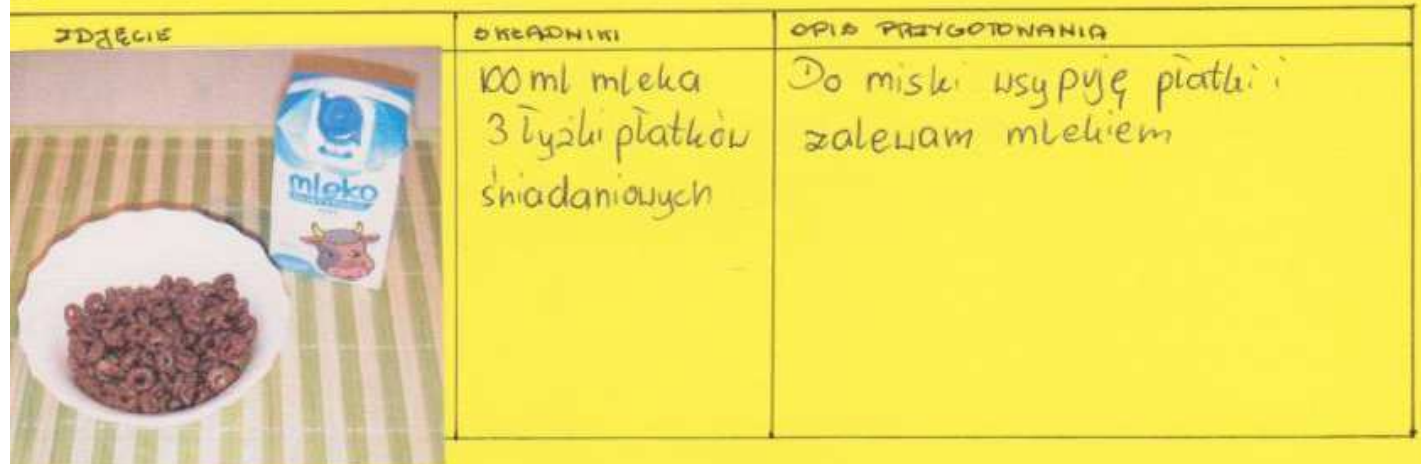 ZDJĘCIE
SKŁADNIKI
OPIS PRZYGOTOWANIA
mleko
100 ml mleka
3 łyżki płatków
śniadaniowych
Do miski wsypuję płatki i
zalewam mlekiem